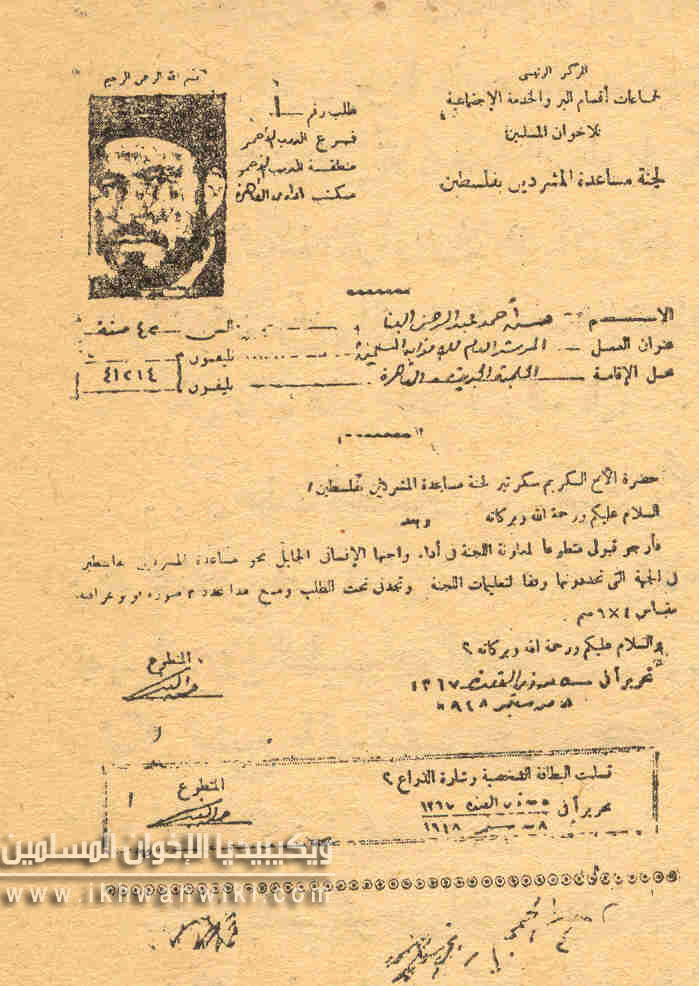 المركز الرئيسى
لجماعات أقسام البر والخدمة الإجتماعية
للاخوان المسلمين
لجنة مساعدة المشردين بفلسطين
بسم الله الرحمن الرحيم
طلب رقم ١
فرع الدرب الأحمر
منطقة الدرب الأحمر
مكتب القاهرة
الإسم حسن أحمد عبد الرحمن البنا السن ٤٢ سنة
عنوان العمل المرشد العام للإخوان المسلمين تليفون
محل الإقامة الحلمية الجديدة القاهرة تليفون ٤١٢١٤
حضرة الأخ الكريم سكرتير لجنة مساعدة المشردين بفلسطين
السلام عليكم ورحمة الله وبركاته وبعد
فأرجو قبولى متطوعا لمعاونة اللجنة فى أداء واجبها الإنسانى الجليل نحو مساعدة المشردين بفلسطين
فى الجهة التى تحددونها وفقا لتعليمات اللجنة وتجدنى تحت الطلب ومع هذا عدد ٢ صورة فوتوغرافية
مقاس ٤×٦ سم
والسلام عليكم ورحمة الله وبركاته ؟
تحريرا فى ٥ من ذى القعدة ١٣٦٧
٨ من سبتمبر ١٩٤٨
المتطوع
تسلمت البطاقة الشخصية وشارة الذراع ؟
تحريرا فى ٥ ذى القعدة ١٣٦٧
٨ سبتمبر ١٩٤٨
المتطوع
ويكيبيديا الإخوان المسلمين
www.ikhwanwiki.com